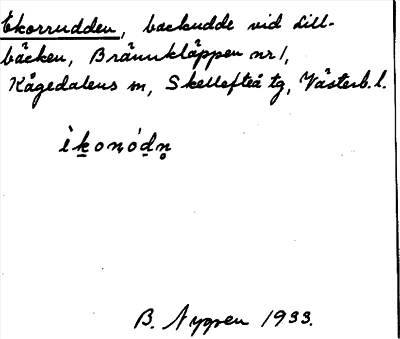 Ekorrudden, backudde vid Lill-
bäcken, Brännkläppen nr 1,
Kågedalens m, Skellefteå tg, Västerb. l.
ìkonódn̥
B. Nygren 1933.